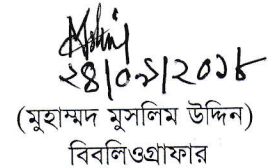 ২৪/০৯/২০১৮
(মুহাম্মদ মুসলিম উদ্দিন)
বিবলিওগ্রাফার